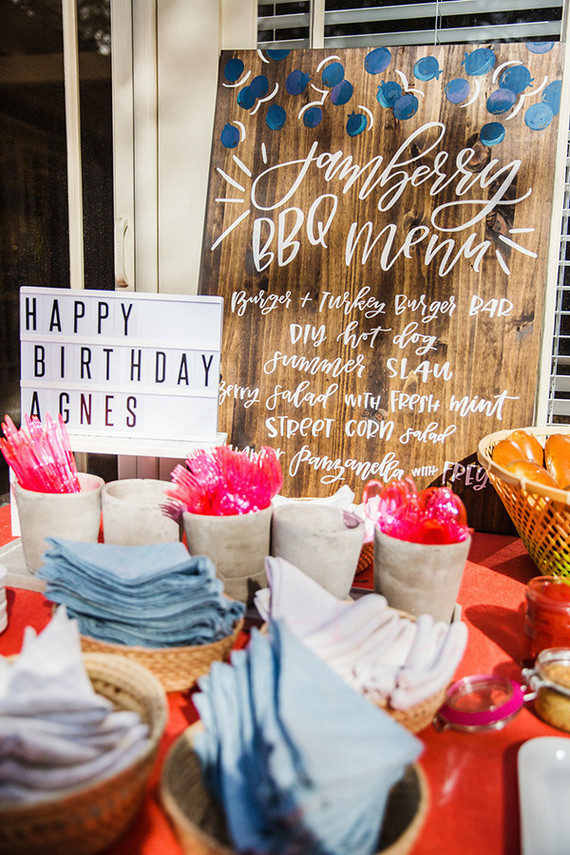 HAPPY
BIRTHDAY
AGNES
Jamberry
BBQ Menu
Burger + Turkey Burger BAR
DIY hot dog
Summer SLAW
Berry Salad with FRESH mint
STREET CORN salad
Panzanella with